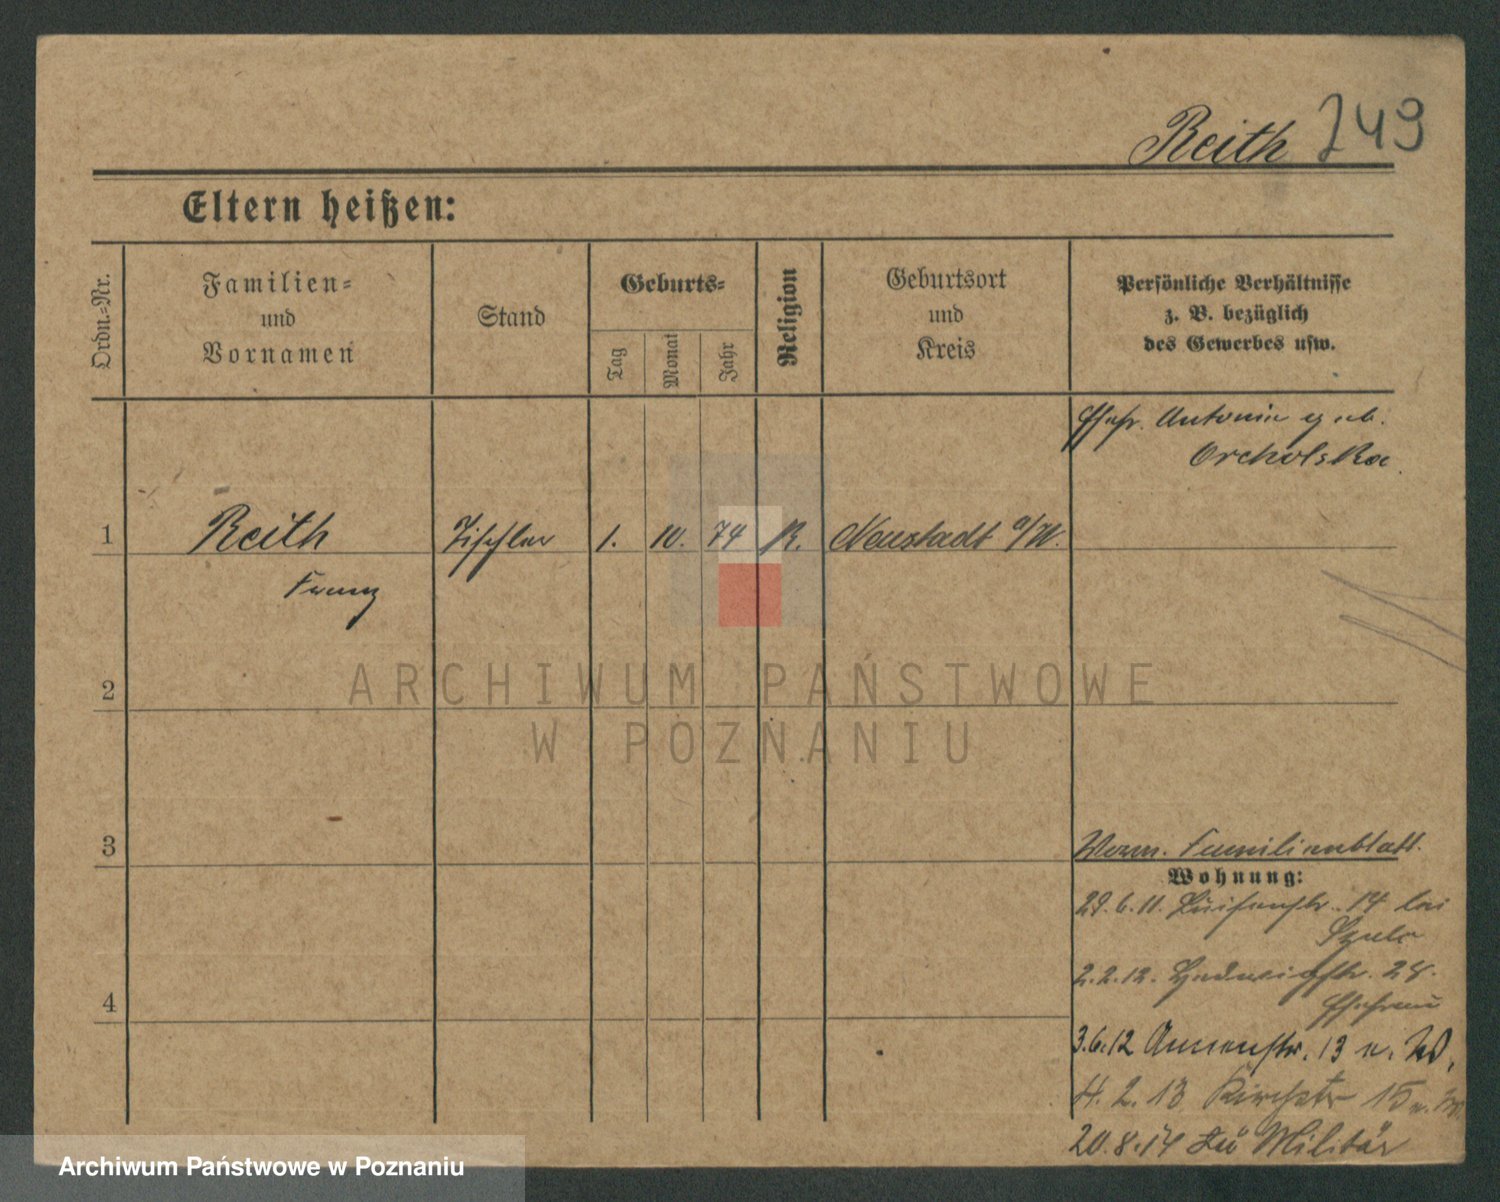 Reith 749
Eltern heißen:
Ordn.-Nr.
Familien-
und
Vornamen
Stand
Geburts-
Tag
Monat
Jahr
Religion
Geburtsort
und
Kreis
Persönliche Verhältnisse
z. B. bezüglich
des Gewerbes usw.
Ehefr. Antonie geb.
Orcholska
1 Reith Tischler 1. 10. 74 K. Neustadt a/W.
Franz
2
ARCHIWUM PAŃSTWOWE
W POZNANIU
3
Familienblatt.
Wohnung:
29.6.11. Luisenstr. 14 bei
Szulc
2.2.12. Hedwigstr. 28.
Ehefrau
4
3.6.12 Annenstr. 13
4.2.13 Kirchstr 15
20.8.14 zu Militär
Archiwum Państwowe w Poznaniu